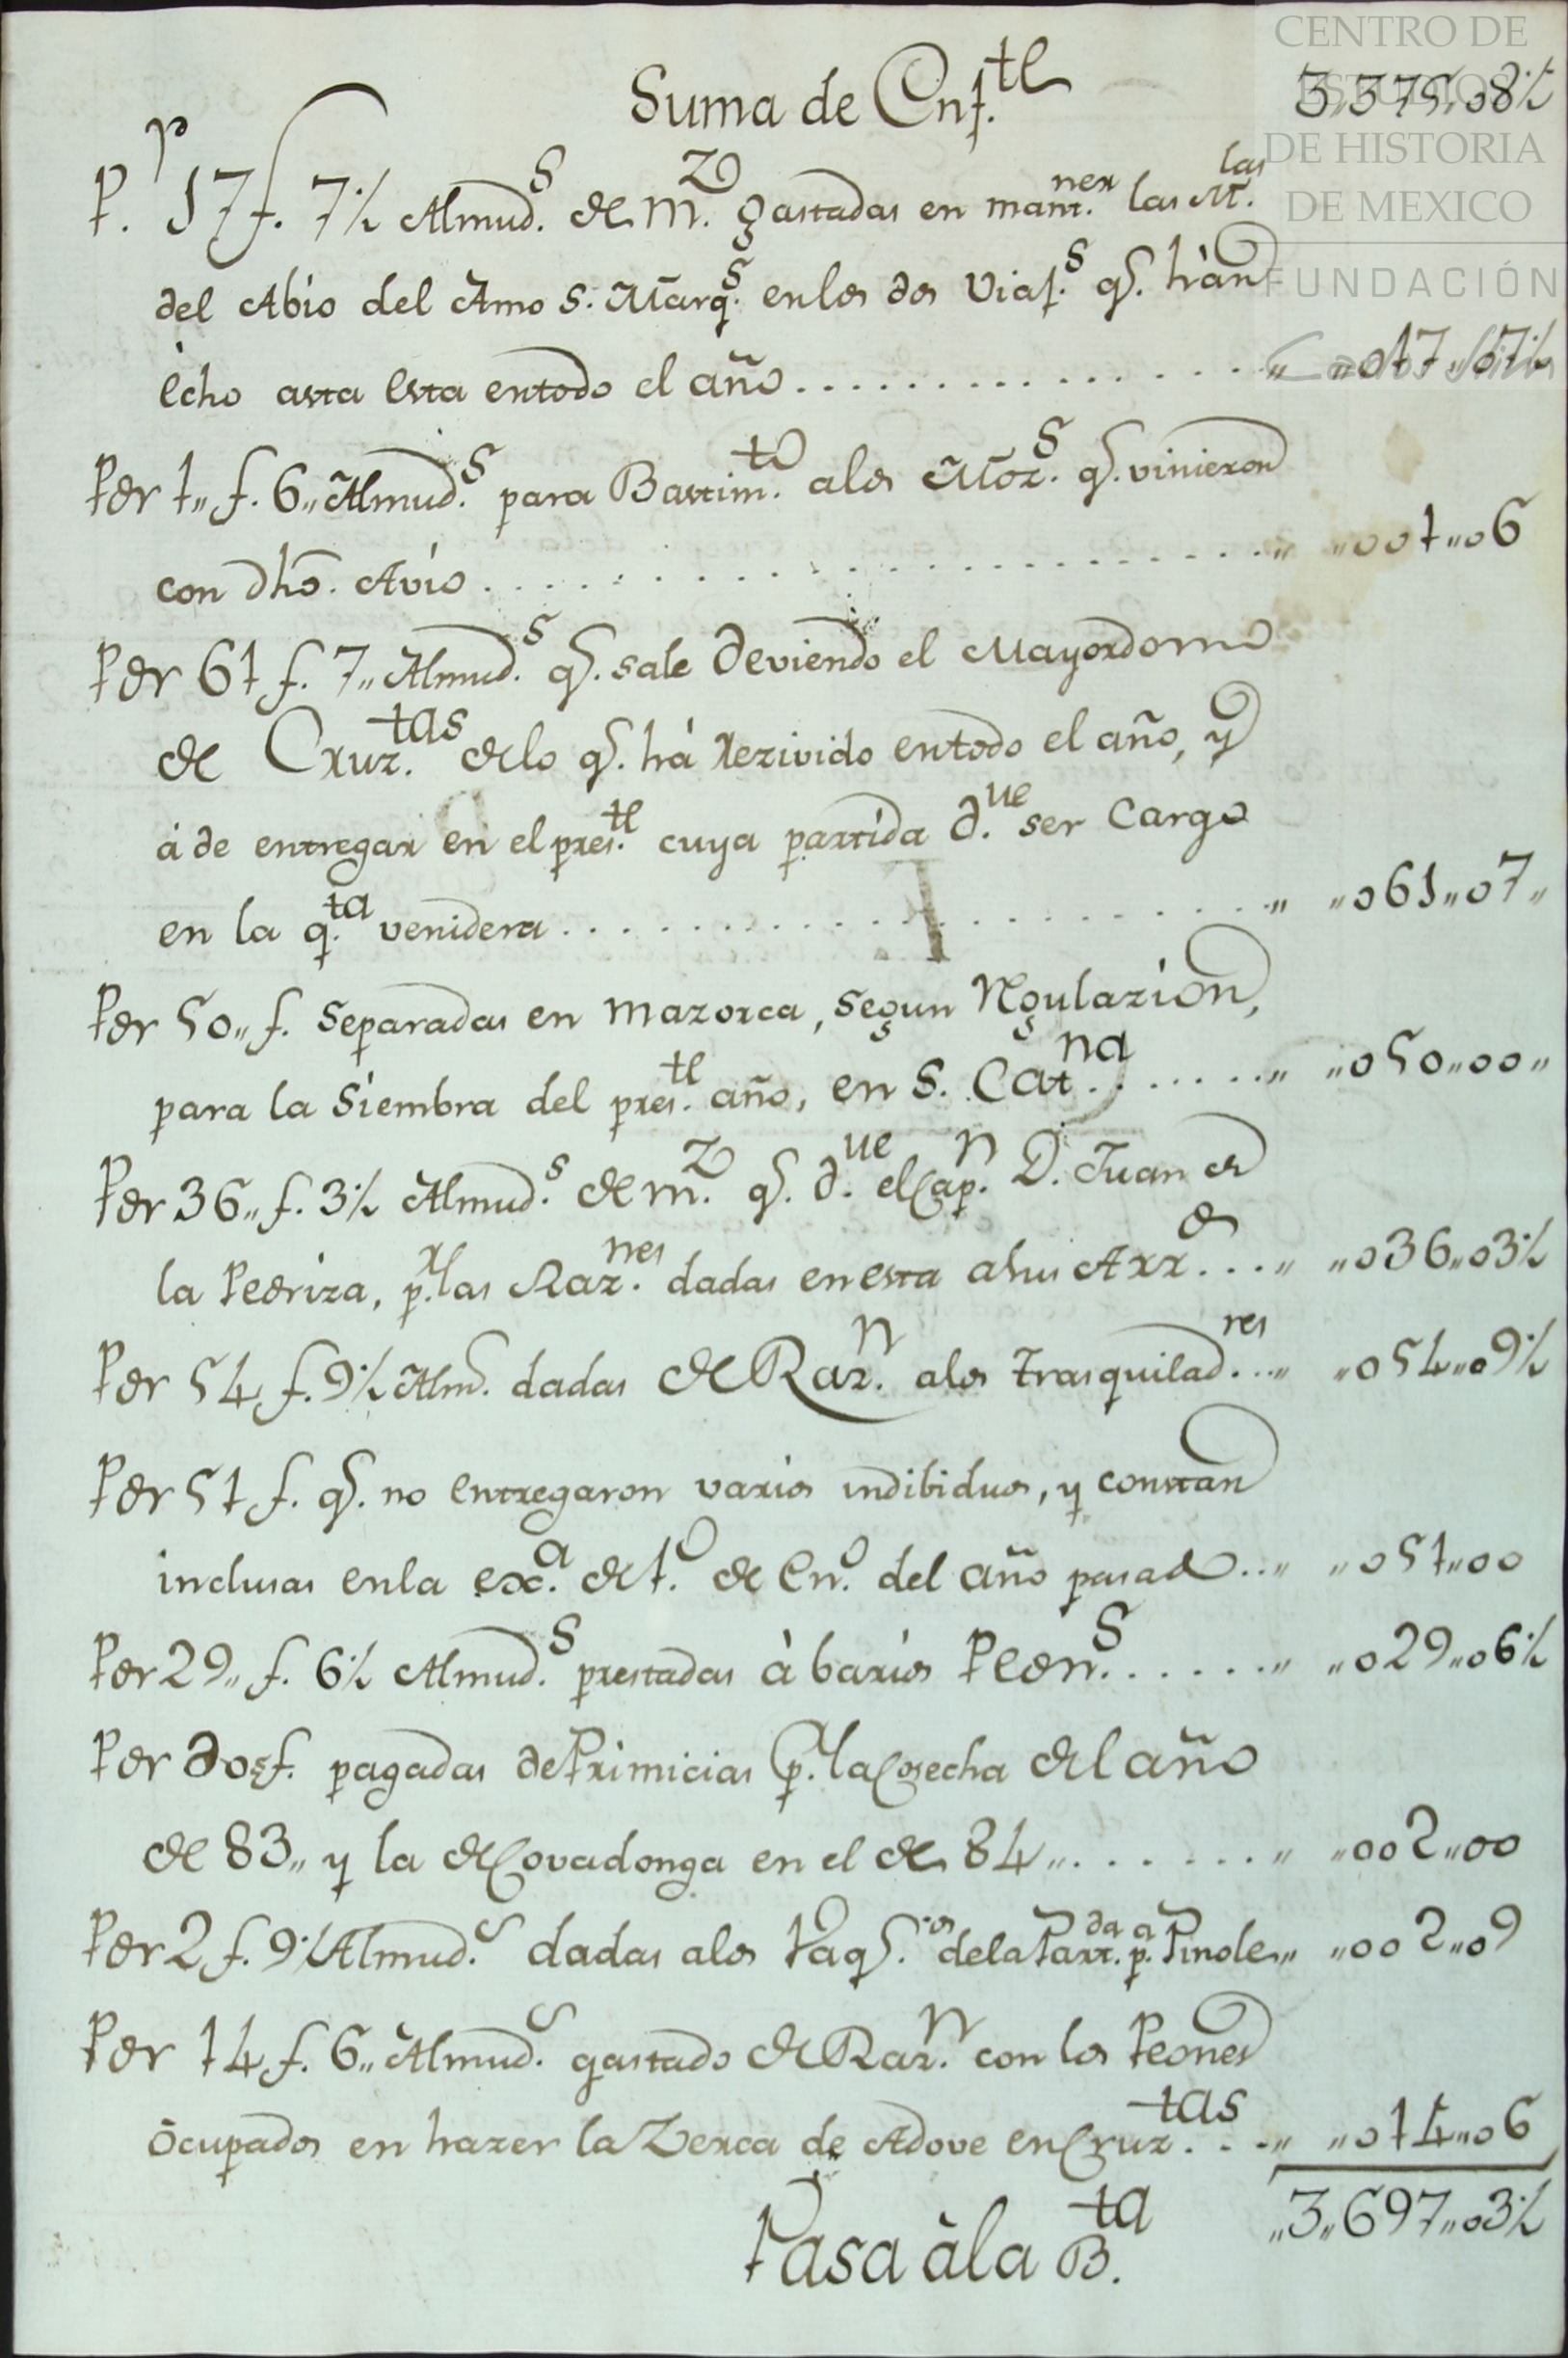 CENTRO DE
ESTUDIOS
DE HISTORIA
DE MEXICO
FUNDACIÓN
Suma de Enf.te 3,375,,08½
P.r 17 f. 7½ Almud.s de m.z gastadas en mant.ner las M.las
del Abio del Amo S. Marq.s en los dos Viaj.s q.e hàn
êcho asta esta en todo el año . . . ,, ,,017,,07½
Por 1,, f. 6,, Almud.s para Bastim.to a los Moz.s q.e vinieron
con dho. Avio . . . ,, ,,001,,06
Por 61 f. 7,, Almud.s q.e sale deviendo el Mayordomo
de Cruz.tas de lo q.e hà rezivido en todo el año, y
à de entregar en el pres.te cuya partida d.ue ser cargo
en la q.ta venidera . . . ,, ,,061,,07,,
Por 50,, f. separadas en mazorca, segun Rgulazion,
para la Siembra del pres.te año, en S. Cat.na . . . ,, ,,050,,00,,
Por 36,, f. 3½ Almud.s de m.z q.e d.ue el Cap.n D. Juan de
la Pedriza, p.r las Raz.nes dadas en esta a sus Arr.os . . . ,, ,,036,,03½
Por 54 f. 9½ Alm.s dadas de Raz.n a los trasquilad.res . . . ,, ,,054,,09½
Por 51 f. q.e no entregaron varios indibiduos, y constan
inclusas en la ex.a de 1.o de En.o del año pasado . . . ,, ,,051,,00
Por 29,, f. 6½ Almud.s prestadas à barios Peon.s . . . ,, ,,029,,06½
Por dos f. pagadas de Primicias p.r la Cosecha del año
de 83,, y la de Covadonga en el de 84,, . . . ,, ,,002,,00
Por 2 f. 9½ Almud.s dadas a los Vaq.ros de la Part.da p.a Pinole,, ,,002,,09
Por 14 f. 6,, Almud.s gastado de Raz.n con los Peones
ôcupados en hazer la Zerca de Adove en Cruz.tas . . . ,, ,,014,,06
,,3,,697,,03½
Pasa à la B.ta